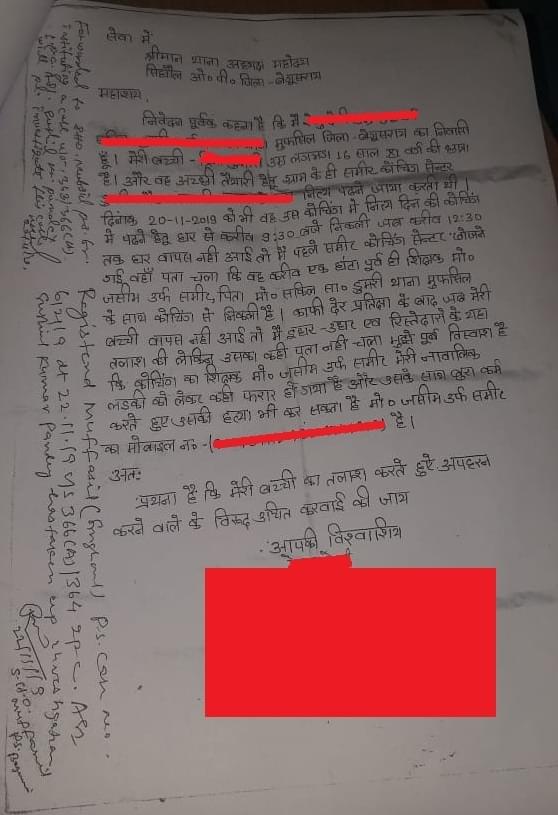 सेवा में,
श्रीमान थाना अध्यक्ष महोदय
सिंघौल ओ० पी० जिला - बेगूसराय
महाशय,
निवेदन पूर्वक कहना है कि मैं
मुफसिल जिला - बेगूसराय का निवासी
हूँ। मेरी बच्ची - उम्र लगभग 16 साल 8वीं की छात्रा
है। और वह अच्छी तैयारी हेतु ग्राम के ही समीर कोचिंग सेन्टर
नित्य पढ़ने जाया करती थी
दिनांक 20-11-2019 को भी वह उस कोचिंग में नित्य दिन की कोचिंग
में पढ़ने हेतु घर से करीब 9:30 बजे निकली जब करीब 12:30
तक घर वापस नहीं आई तो मैं पहले समीर कोचिंग सेन्टर खोजने
गई वहाँ पता चला कि वह करीब एक घंटा पूर्व ही शिक्षक मो०
जसीम उर्फ समीर, पिता मो० सकिल सा० डुमरी थाना मुफसिल
के साथ कोचिंग से निकली है। काफी देर प्रतिक्षा के बाद जब मेरी
बच्ची वापस नहीं आई तो मैं इधर-उधर एवं रिस्तेदारो के यहा
तलाश की लेकिन उसका कही पता नही चला मुझे पूर्ण विस्वाश है
कि कोचिंग का शिक्षक मो० जसीम उर्फ समीर मेरी नाबालिक
लड़की को लेकर कही फरार हो गया है और उसके साथ बुरा कर्म
करते हुए उसकी हत्या भी कर सकता है मो० जसीम उर्फ समीर
का मोबाइल न० - है।
अतः
प्रथना है कि मेरी बच्ची का तलाश करते हुए अपहरन
करने वाले के विरूद्ध उचित करवाई की जाय
आपकी विश्वाशिय
Forwarded to SHO Muffasil P.S. for
instituting a case u/s 363/366(A)
I.P.C.
will pl. investigate the case
Registered Muffasil (Singhaul) P.S. Case no.
619/19 dt 22.11.19 u/s 366(A)/364 IPC. ASI
Sushil Kumar Pandey
22/11/19
S.H.O. Muffasil
P.S.